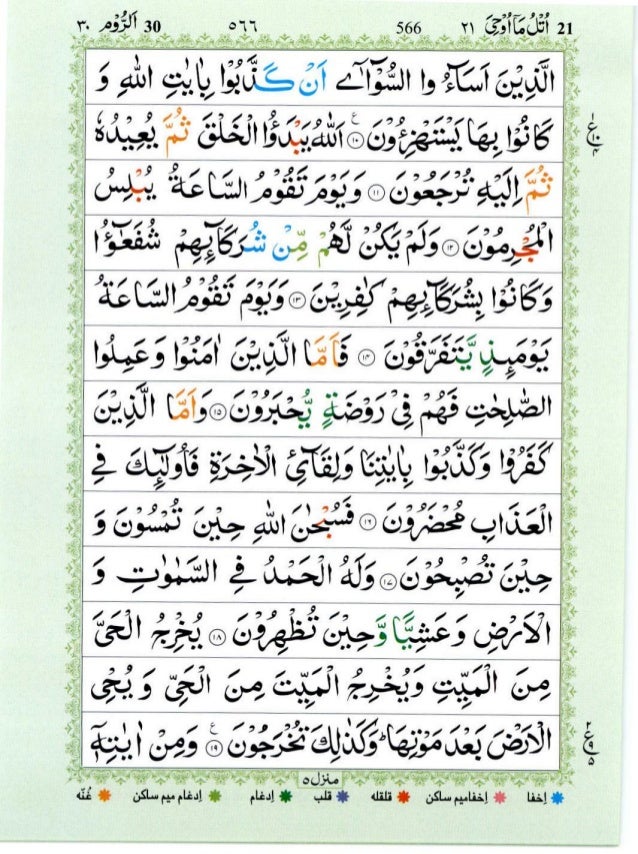 21 اُتْلُ مَاۤ اُوْحِیَ ٢١ 566 ٥٦٦ 30 اَلرُّوْم ٣٠
الَّذِیْنَ اَسَآءُ وا السُّوْٓاٰۤی اَنْ كَذَّبُوْا بِاٰیٰتِ اللّٰهِ وَ
كَانُوْا بِهَا یَسْتَهْزِءُوْنَ ۝١٠ اَللّٰهُ یَبْدَؤُا الْخَلْقَ ثُمَّ یُعِیْدُهٗ
ثُمَّ اِلَیْهِ تُرْجَعُوْنَ ۝١١ وَیَوْمَ تَقُوْمُ السَّاعَةُ یُبْلِسُ
الْمُجْرِمُوْنَ ۝١٢ وَلَمْ یَكُنْ لَّهُمْ مِّنْ شُرَكَآىِٕهِمْ شُفَعٰٓؤُا
وَكَانُوْا بِشُرَكَآىِٕهِمْ كٰفِرِیْنَ ۝١٣ وَیَوْمَ تَقُوْمُ السَّاعَةُ
یَوْمَىِٕذٍ یَّتَفَرَّقُوْنَ ۝١٤ فَاَمَّا الَّذِیْنَ اٰمَنُوْا وَعَمِلُوا
الصّٰلِحٰتِ فَهُمْ فِیْ رَوْضَةٍ یُّحْبَرُوْنَ ۝١٥ وَاَمَّا الَّذِیْنَ
كَفَرُوْا وَكَذَّبُوْا بِاٰیٰتِنَا وَلِقَآئِ الْاٰخِرَةِ فَاُولٰٓىِٕكَ فِی
الْعَذَابِ مُحْضَرُوْنَ ۝١٦ فَسُبْحٰنَ اللّٰهِ حِیْنَ تُمْسُوْنَ وَ
حِیْنَ تُصْبِحُوْنَ ۝١٧ وَلَهُ الْحَمْدُ فِی السَّمٰوٰتِ وَ
الْاَرْضِ وَعَشِیًّا وَّحِیْنَ تُظْهِرُوْنَ ۝١٨ یُخْرِجُ الْحَیَّ
مِنَ الْمَیِّتِ وَیُخْرِجُ الْمَیِّتَ مِنَ الْحَیِّ وَیُحْیِ
الْاَرْضَ بَعْدَ مَوْتِهَا ؕ وَكَذٰلِكَ تُخْرَجُوْنَ ۝١٩ وَمِنْ اٰیٰتِهٖۤ
منزل ٥
اِخفا اِخفامیم ساکن قلقله قلب اِدغام اِدغام میم ساکن غُنّه